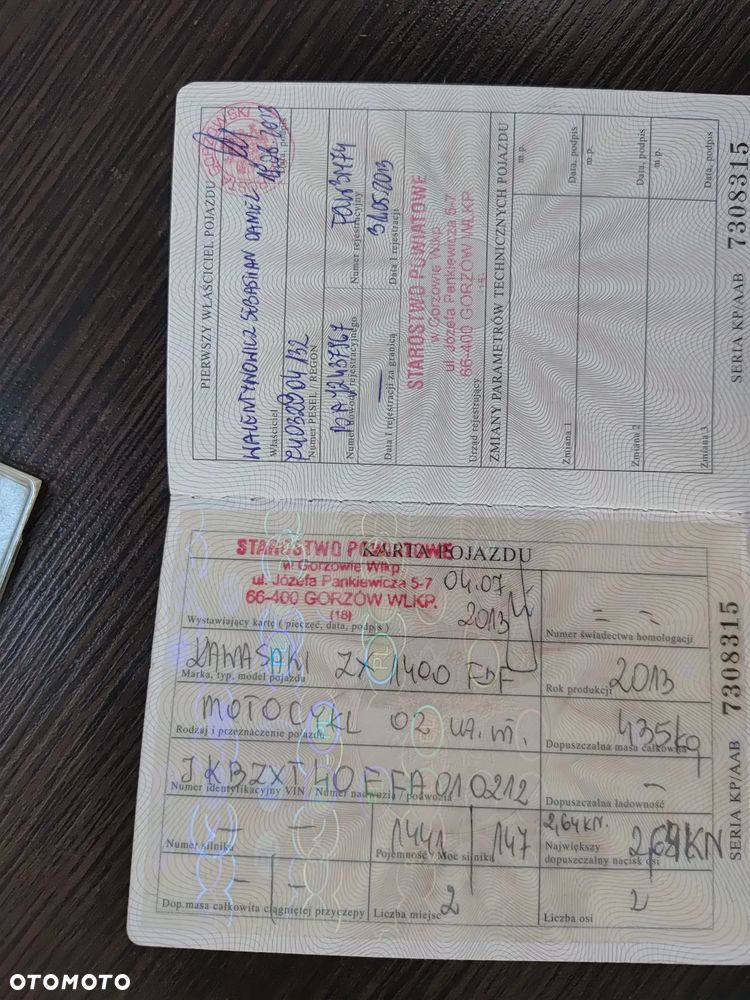 PIERWSZY WŁAŚCICIEL POJAZDU
WALENTYNOWICZ SEBASTIAN DANIEL
Właściciel
Data, podpis
Numer PESEL / REGON
Numer dowodu rejestracyjnego
Numer rejestracyjny
31.05.2013
Data I rejestracji za granicą
Data I rejestracji
STAROSTWO POWIATOWE
w Gorzowie Wlkp.
ul. Józefa Pankiewicza 5-7
66-400 GORZÓW WLKP.
Urząd rejestrujący
ZMIANY PARAMETRÓW TECHNICZNYCH POJAZDU
m.p.
Zmiana 1
Data, podpis
m.p.
Zmiana 2
Data, podpis
m.p.
Zmiana 3
Data, podpis
SERIA KP/AAB 7308315
KARTA POJAZDU
STAROSTWO POWIATOWE
w Gorzowie Wlkp.
ul. Józefa Pankiewicza 5-7
66-400 GORZÓW WLKP.
(18)
04.07
2013
Wystawiający kartę ( pieczęć, data, podpis )
Numer świadectwa homologacji
KAWASAKI ZX 1400 FDF
Marka, typ, model pojazdu
2013
Rok produkcji
MOTOCYKL
Rodzaj i przeznaczenie pojazdu
435kg
Dopuszczalna masa całkowita
JKBZXT40EFA010212
Numer identyfikacyjny VIN / Numer nadwozia / podwozia
Dopuszczalna ładowność
Numer silnika
1441 147
Pojemność / Moc silnika
2,64KN.
2,64KN
Największy
dopuszczalny nacisk osi
Dop.masa całkowita ciągniętej przyczepy
2
Liczba miejsc
2
Liczba osi
SERIA KP/AAB 7308315
OTOMOTO